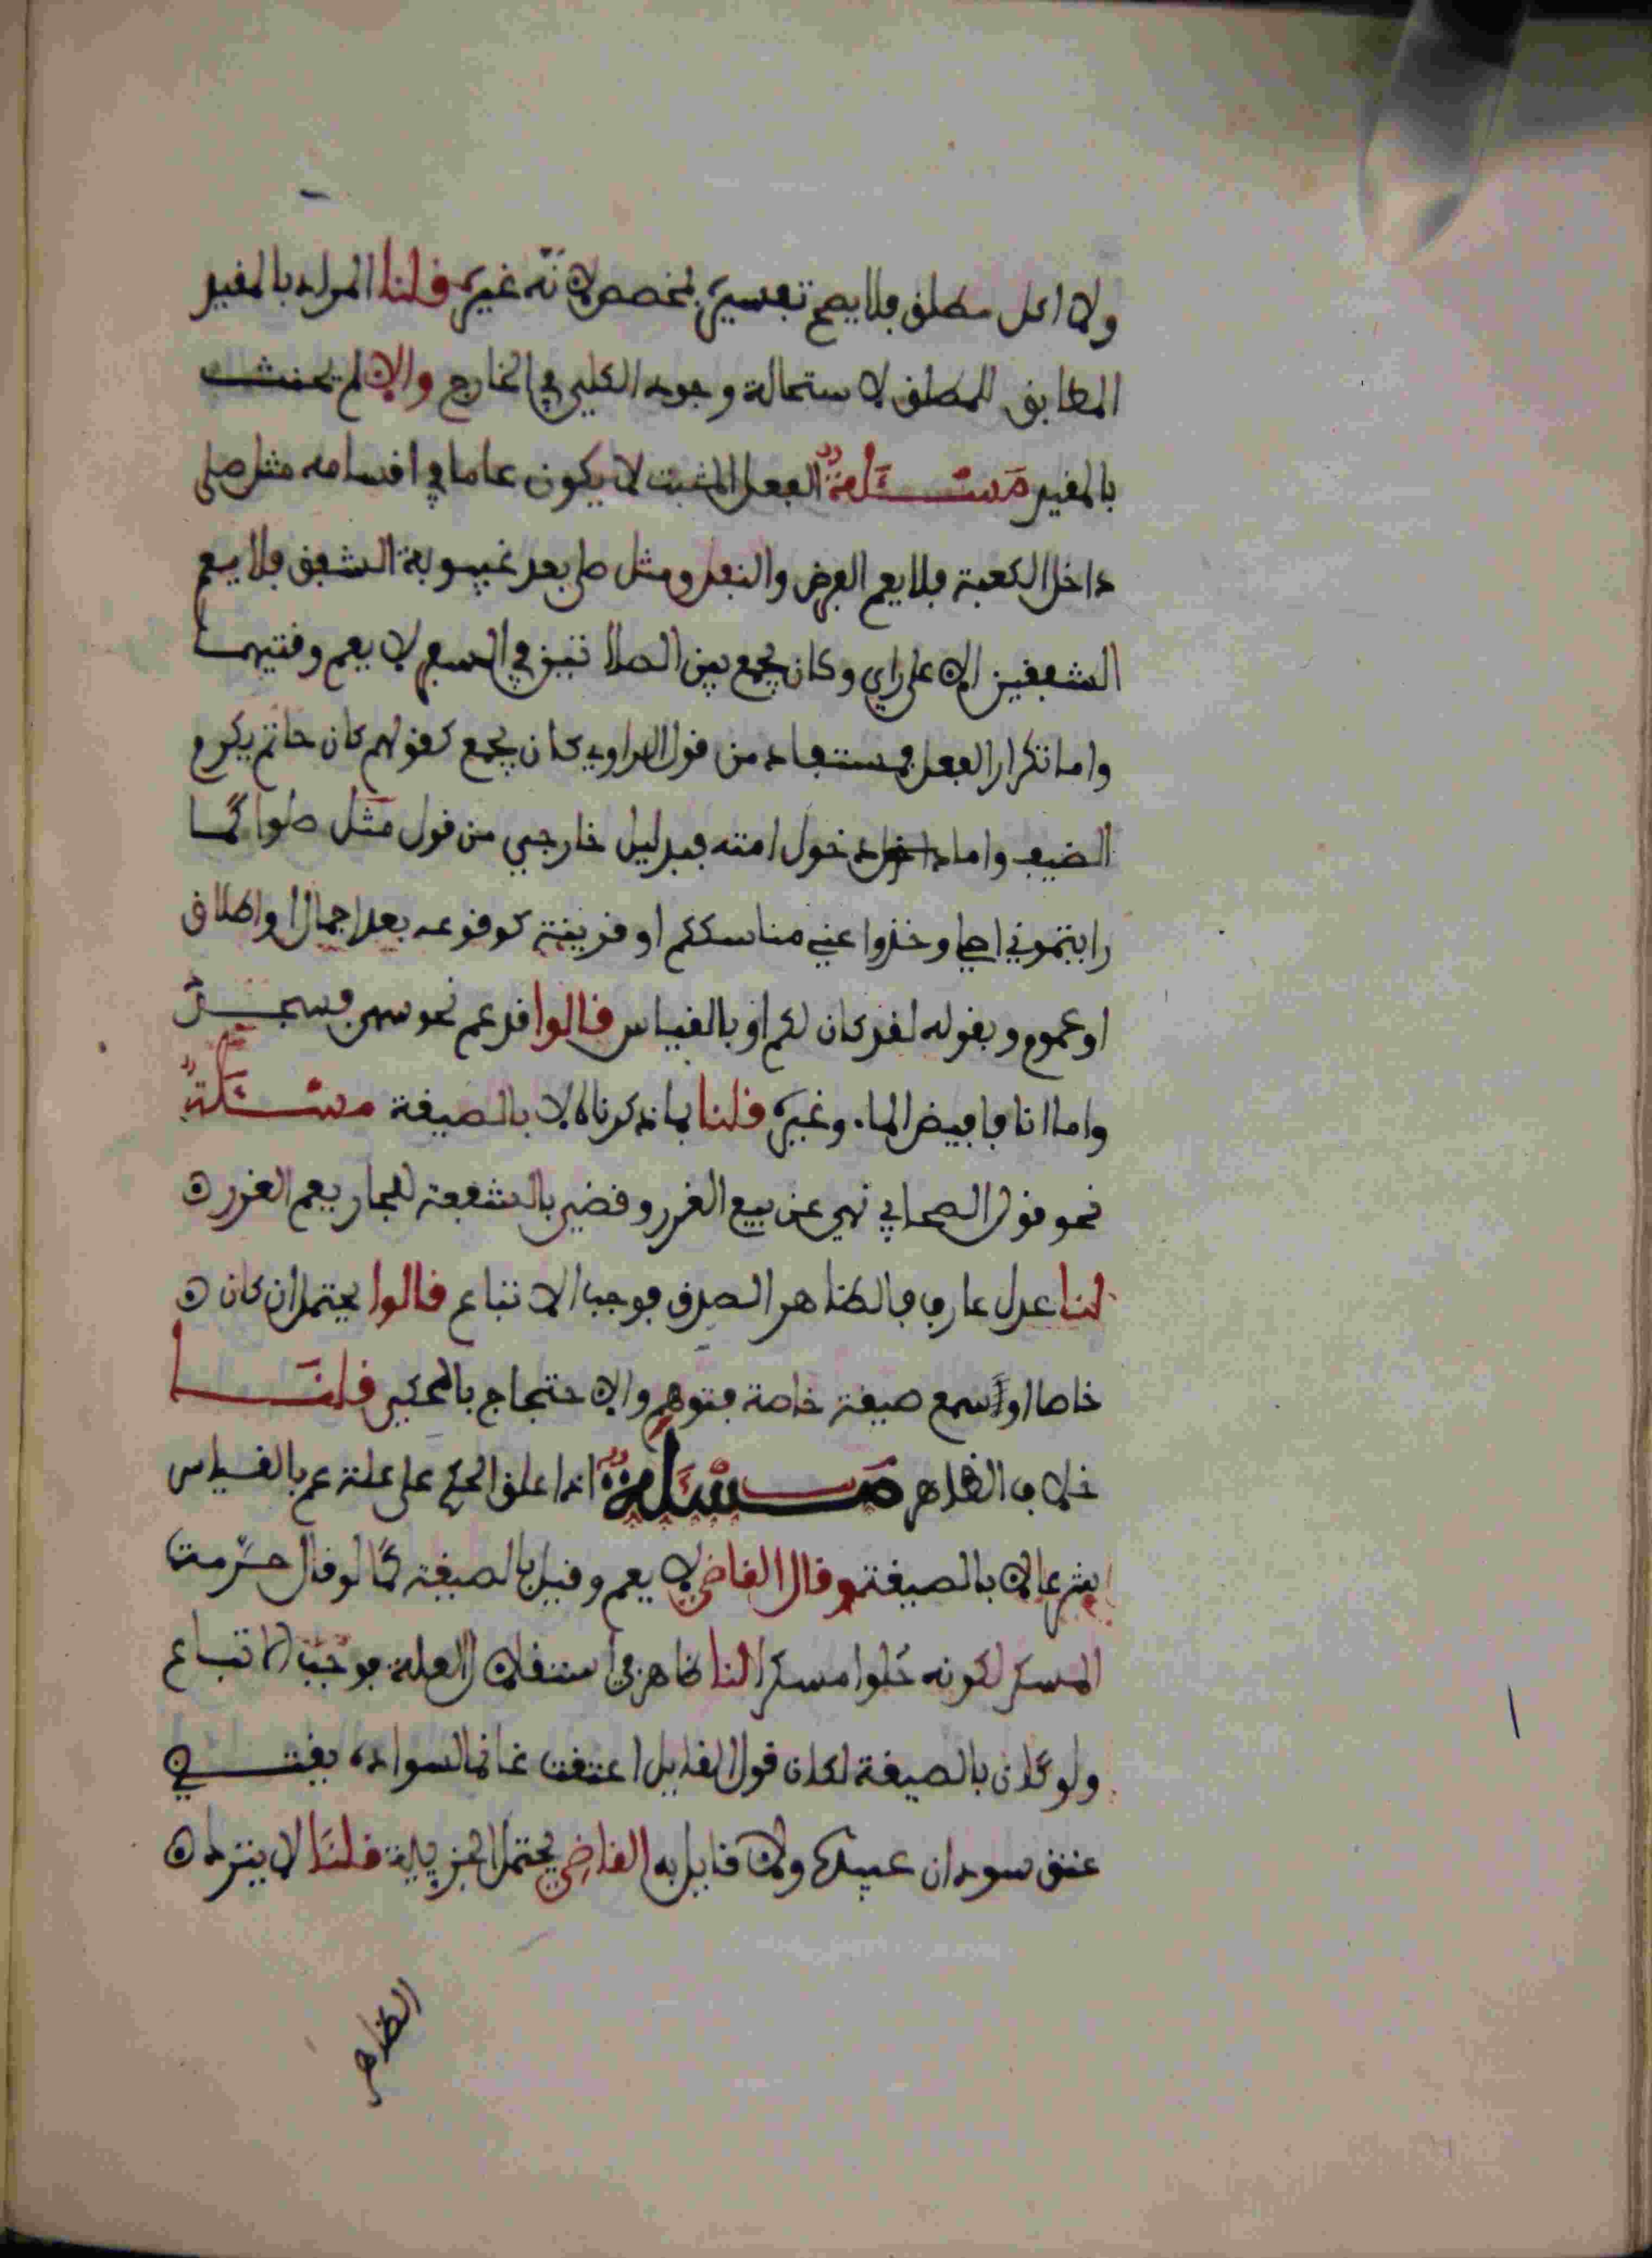 ولا اكل مطلق فلا يصح تفسيره بمخصص لانه غيره قلنا المراد بالمقيد
المطابق للمطلق لاستحالة وجود الكلي في الخارج والا لم يحنث
بالمقيد مسئلة الفعل المثبت لا يكون عاما في اقسامه مثل صلى
داخل الكعبة فلا يعم الفرض والنفل ومثل صلى بعد غيبوبة الشفق فلا يعم
الشفقين الا على راي وكان يجمع بين الصلاتين في السفر لا يعم وقتيهما
واما تكرار الفعل فمستفاد من قول الراوي كان يجمع كقولهم كان حاتم يكرم
الضيف واما دخول امته فبدليل خارجي من قول مثل صلوا كما
رايتموني اصلي وخذوا عني مناسككم او قرينة كوقوعه بعد اجمال او اطلاق
او عموم وبقوله لقد كان لكم او بالقياس قالوا قد عم نحو سهى فسجد
واما انا فافيض الماء وغيره قلنا بما ذكرناه لا بالصيغة مسئلة
نحو قول الصحابي نهى عن بيع الغرر وقضى بالشفعة للجار يعم الغرر
لنا عدل عارف فالظاهر الصدق فوجب الاتباع قالوا يحتمل ان كان
خاصا او سمع صيغة خاصة فتوهم والاحتجاج بالمحكي قلنا
خلاف الظاهر مسئلة اذا علق الحكم على علة عم بالقياس
شرعا لا بالصيغة وقال القاضي لا يعم وقيل بالصيغة كما لو قال حرمت
المسكر لكونه حلوا مسكرا لنا ظاهر في استقلال العلة فوجب الاتباع
ولو كان بالصيغة لكان قول القايل اعتقت غانما لسواده يقتضي
عتق سودان عبيده ولا قايل به القاضي يحتمل الجزيية قلنا لا يترك
الظاهر